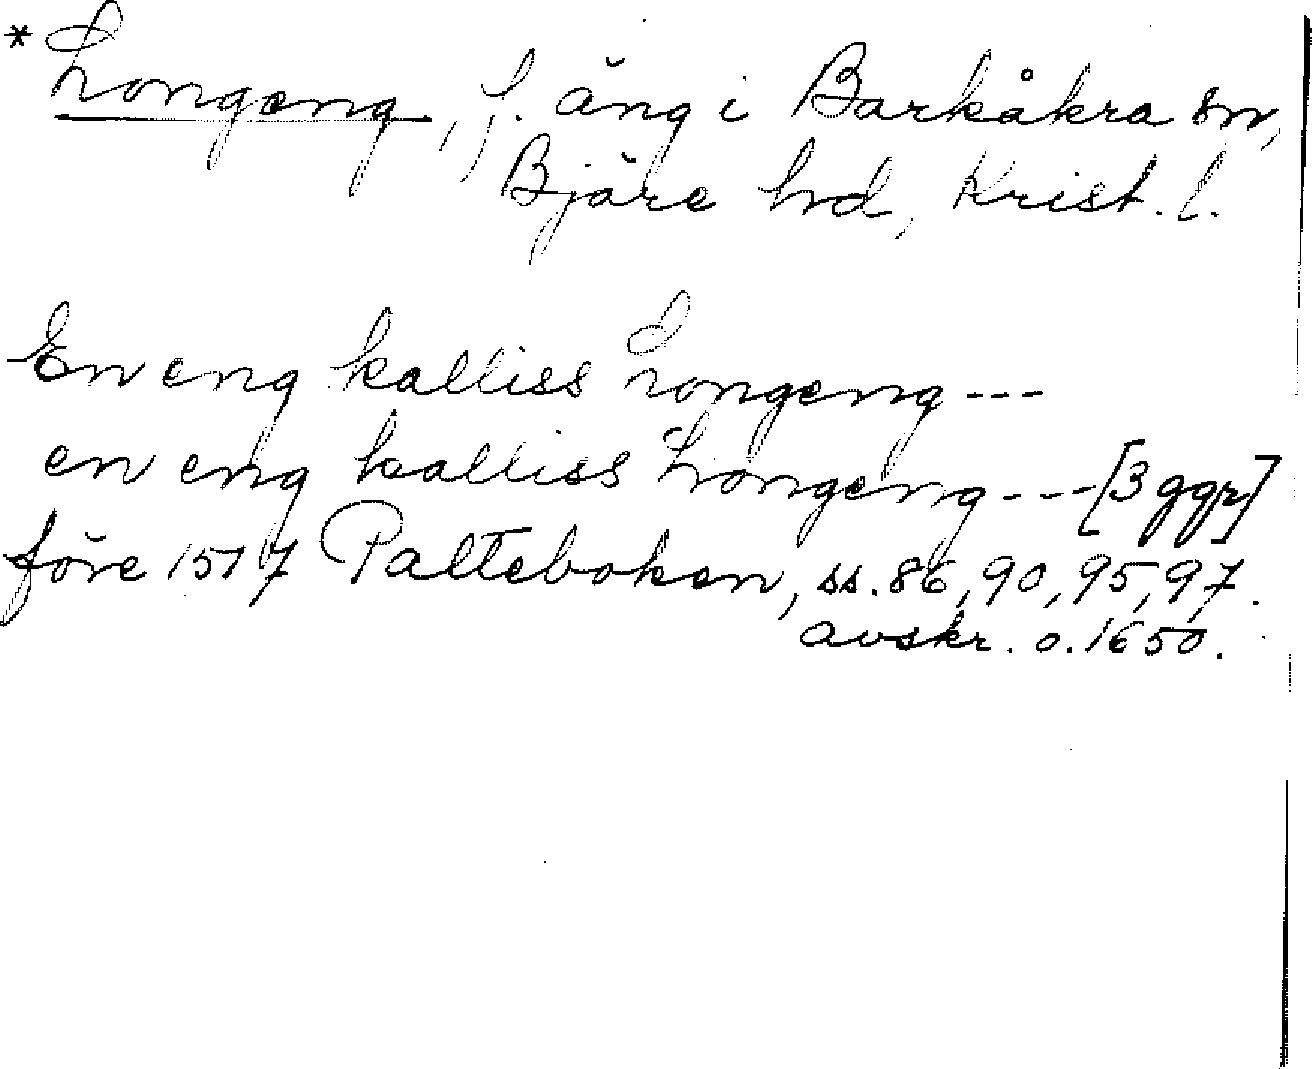 *Longeng, f. äng i Barkåkra sn,
Bjäre hd, Krist. l.
En eng kalliss Longeng ---
en eng kalliss Longeng --- [3 ggr]
före 1517 Palteboken, ss. 86, 90, 95, 97.
avskr. o. 1650.